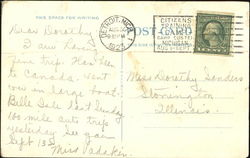 THIS SPACE FOR WRITING
POST CARD
DETROIT, MICH.
AUG 30
1923
CITIZENS
TRAINING
CAMP CUSTER
MICHIGAN
Dear Dorothy
I am having
fine trip. Has been
to Canada. Went
over in large boat.
Belle Isle last Sunday
100 mile auto trip
yesterday. See you
Sept 13
Miss
Miss Dorothy Sanders
Stonington
Illinois.